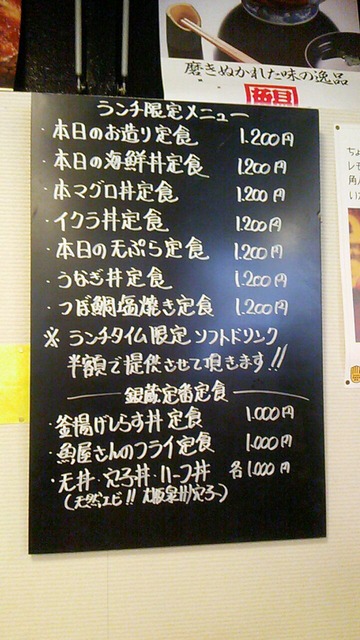 磨きぬかれた味の逸品
ランチ限定メニュー
・本日のお造り定食 1.200円
・本日の海鮮丼定食 1.200円
・本マグロ丼定食 1.200円
・イクラ丼定食 1.200円
・本日の天ぷら定食 1.200円
・うなぎ丼定食 1.200円
・つぼ鯛塩焼き定食 1.200円
※ ランチタイム限定 ソフトドリンク
半額で提供させて頂きます!!
銀蔵定番定食
・釜揚げしらす丼定食 1.000円
・魚屋さんのフライ定食 1.000円
・天丼・穴子丼・ハーフ丼 各1.000円
(天然エビ!! 大阪泉州穴子)